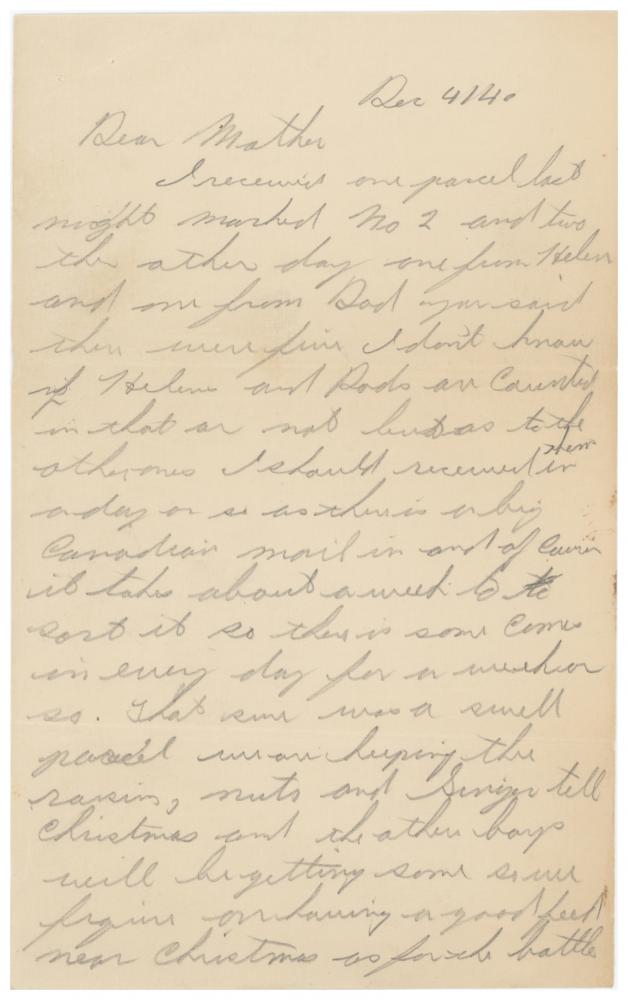 Dec 4/40
Dear Mother
I received one parcel last
night marked No 2 and two
the other day one from Helen
and one from Dad you said
there were five I don't know
if Helens and Dads are Counted
in that or not but as to the
other ones I should received them in
a day or so as there is a big
Canadian mail in and of Course
it takes about a week to
sort it so there is some Comes
in every day for a week or
so. That sure was a swell
parcel we are keeping the
raisins, nuts and Ginger till
Christmas and the other boys
will be getting some so we
figure on having a good feed
near Christmas as for the battle